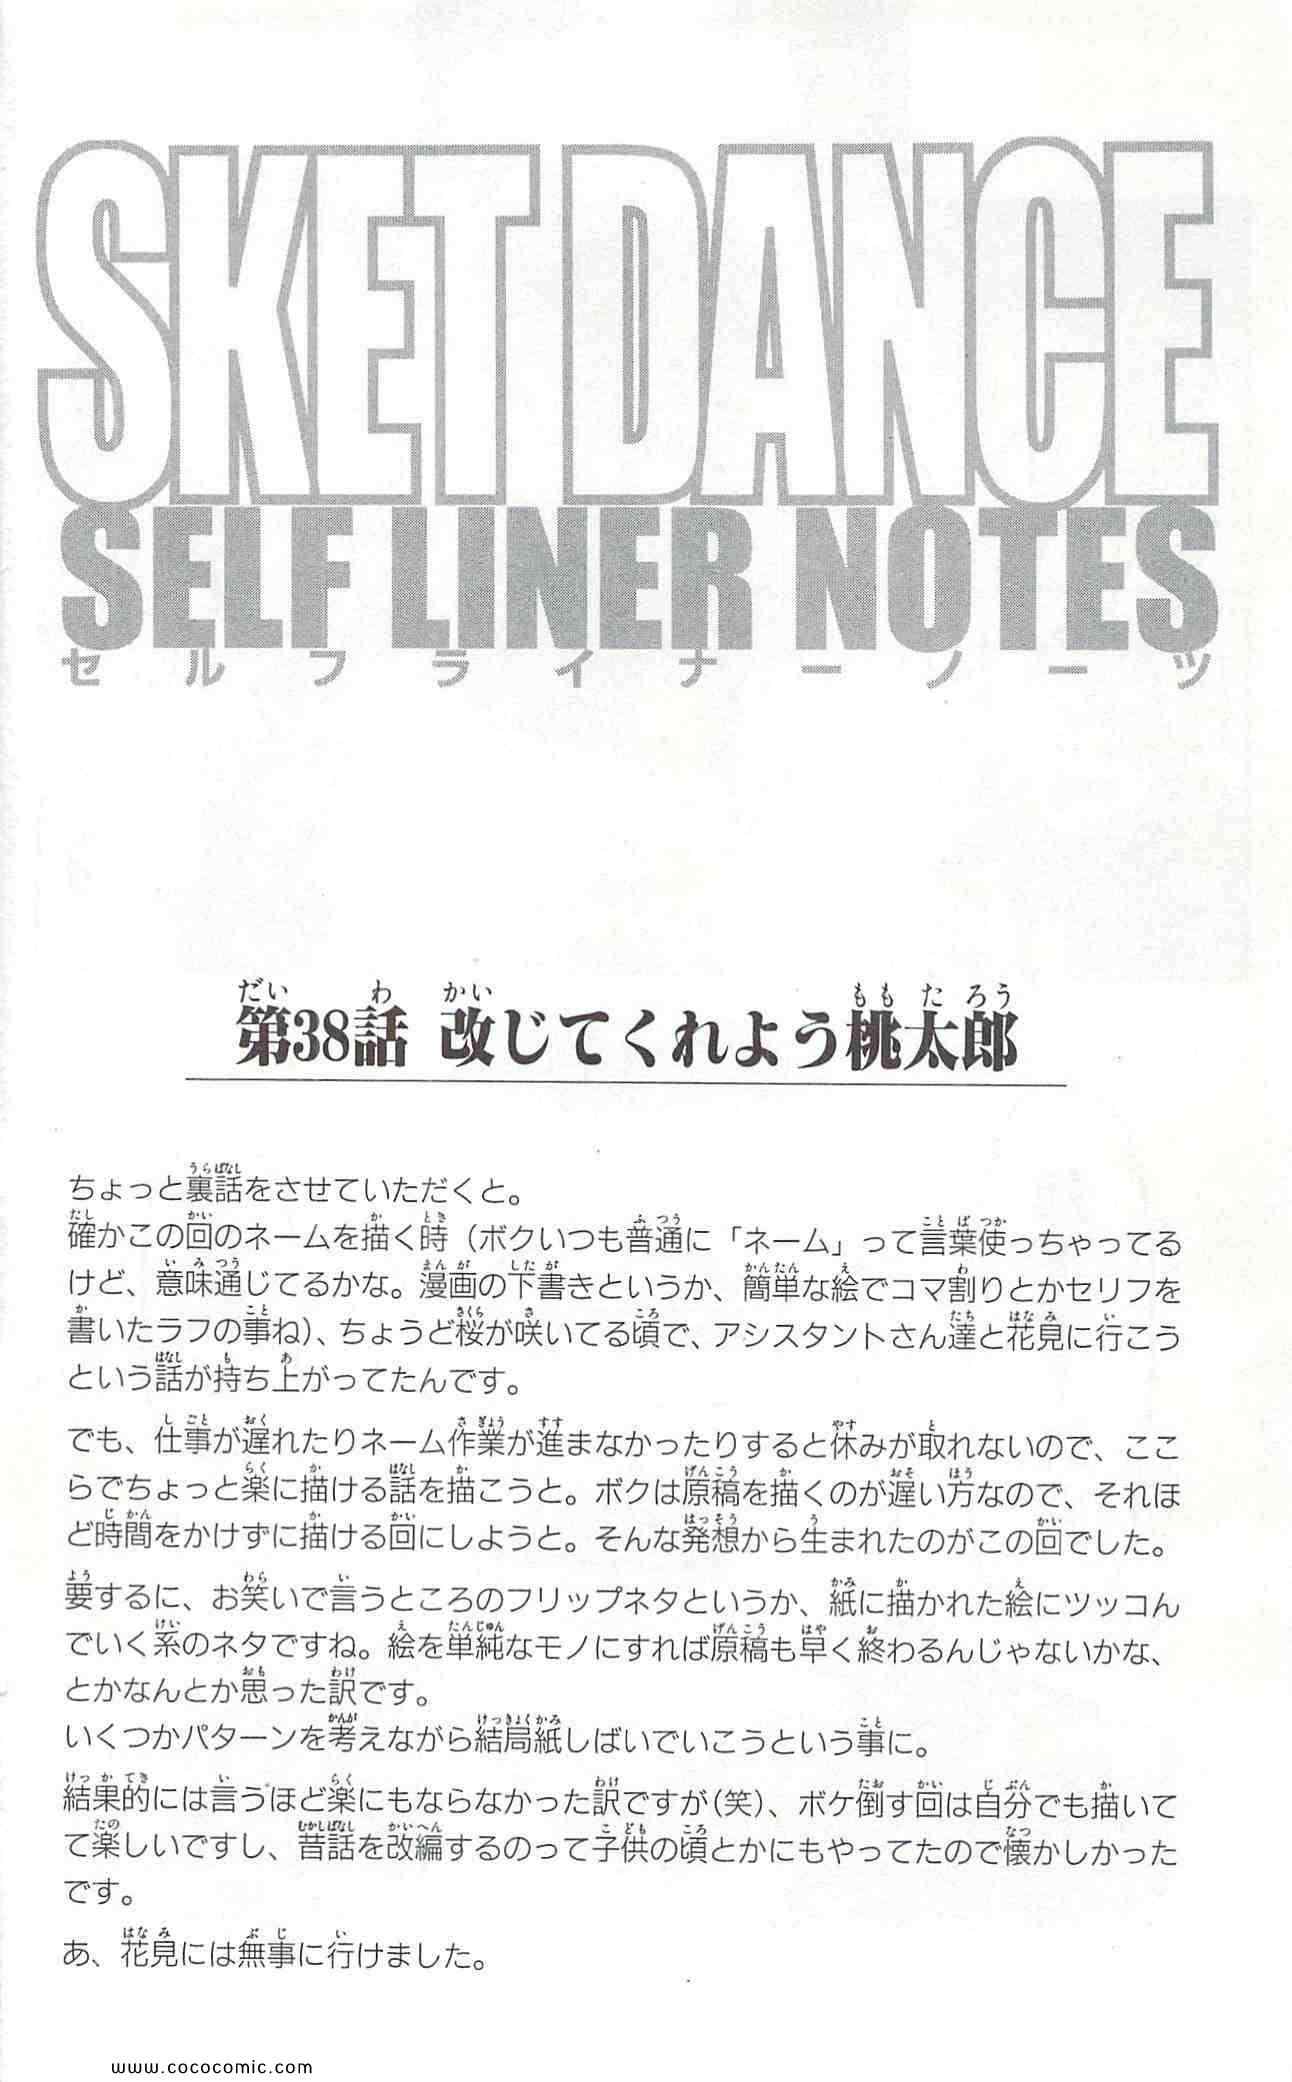 SKET DANCE
SELF LINER NOTES
セルフライナーノーツ
第38話 改じてくれよう桃太郎
ちょっと裏話をさせていただくと。
確かこの回のネームを描く時（ボクいつも普通に「ネーム」って言葉使っちゃってる
けど、意味通じてるかな。漫画の下書きというか、簡単な絵でコマ割りとかセリフを
書いたラフの事ね）、ちょうど桜が咲いてる頃で、アシスタントさん達と花見に行こう
という話が持ち上がってたんです。
でも、仕事が遅れたりネーム作業が進まなかったりすると休みが取れないので、ここ
らでちょっと楽に描ける話を描こうと。ボクは原稿を描くのが遅い方なので、それほ
ど時間をかけずに描ける回にしようと。そんな発想から生まれたのがこの回でした。
要するに、お笑いで言うところのフリップネタというか、紙に描かれた絵にツッコん
でいく系のネタですね。絵を単純なモノにすれば原稿も早く終わるんじゃないかな、
とかなんとか思った訳です。
いくつかパターンを考えながら結局紙しばいでいこうという事に。
結果的には言うほど楽にもならなかった訳ですが（笑）、ボケ倒す回は自分でも描いて
て楽しいですし、昔話を改編するのって子供の頃とかにもやってたので懐かしかった
です。
あ、花見には無事に行けました。
www.cococomic.com